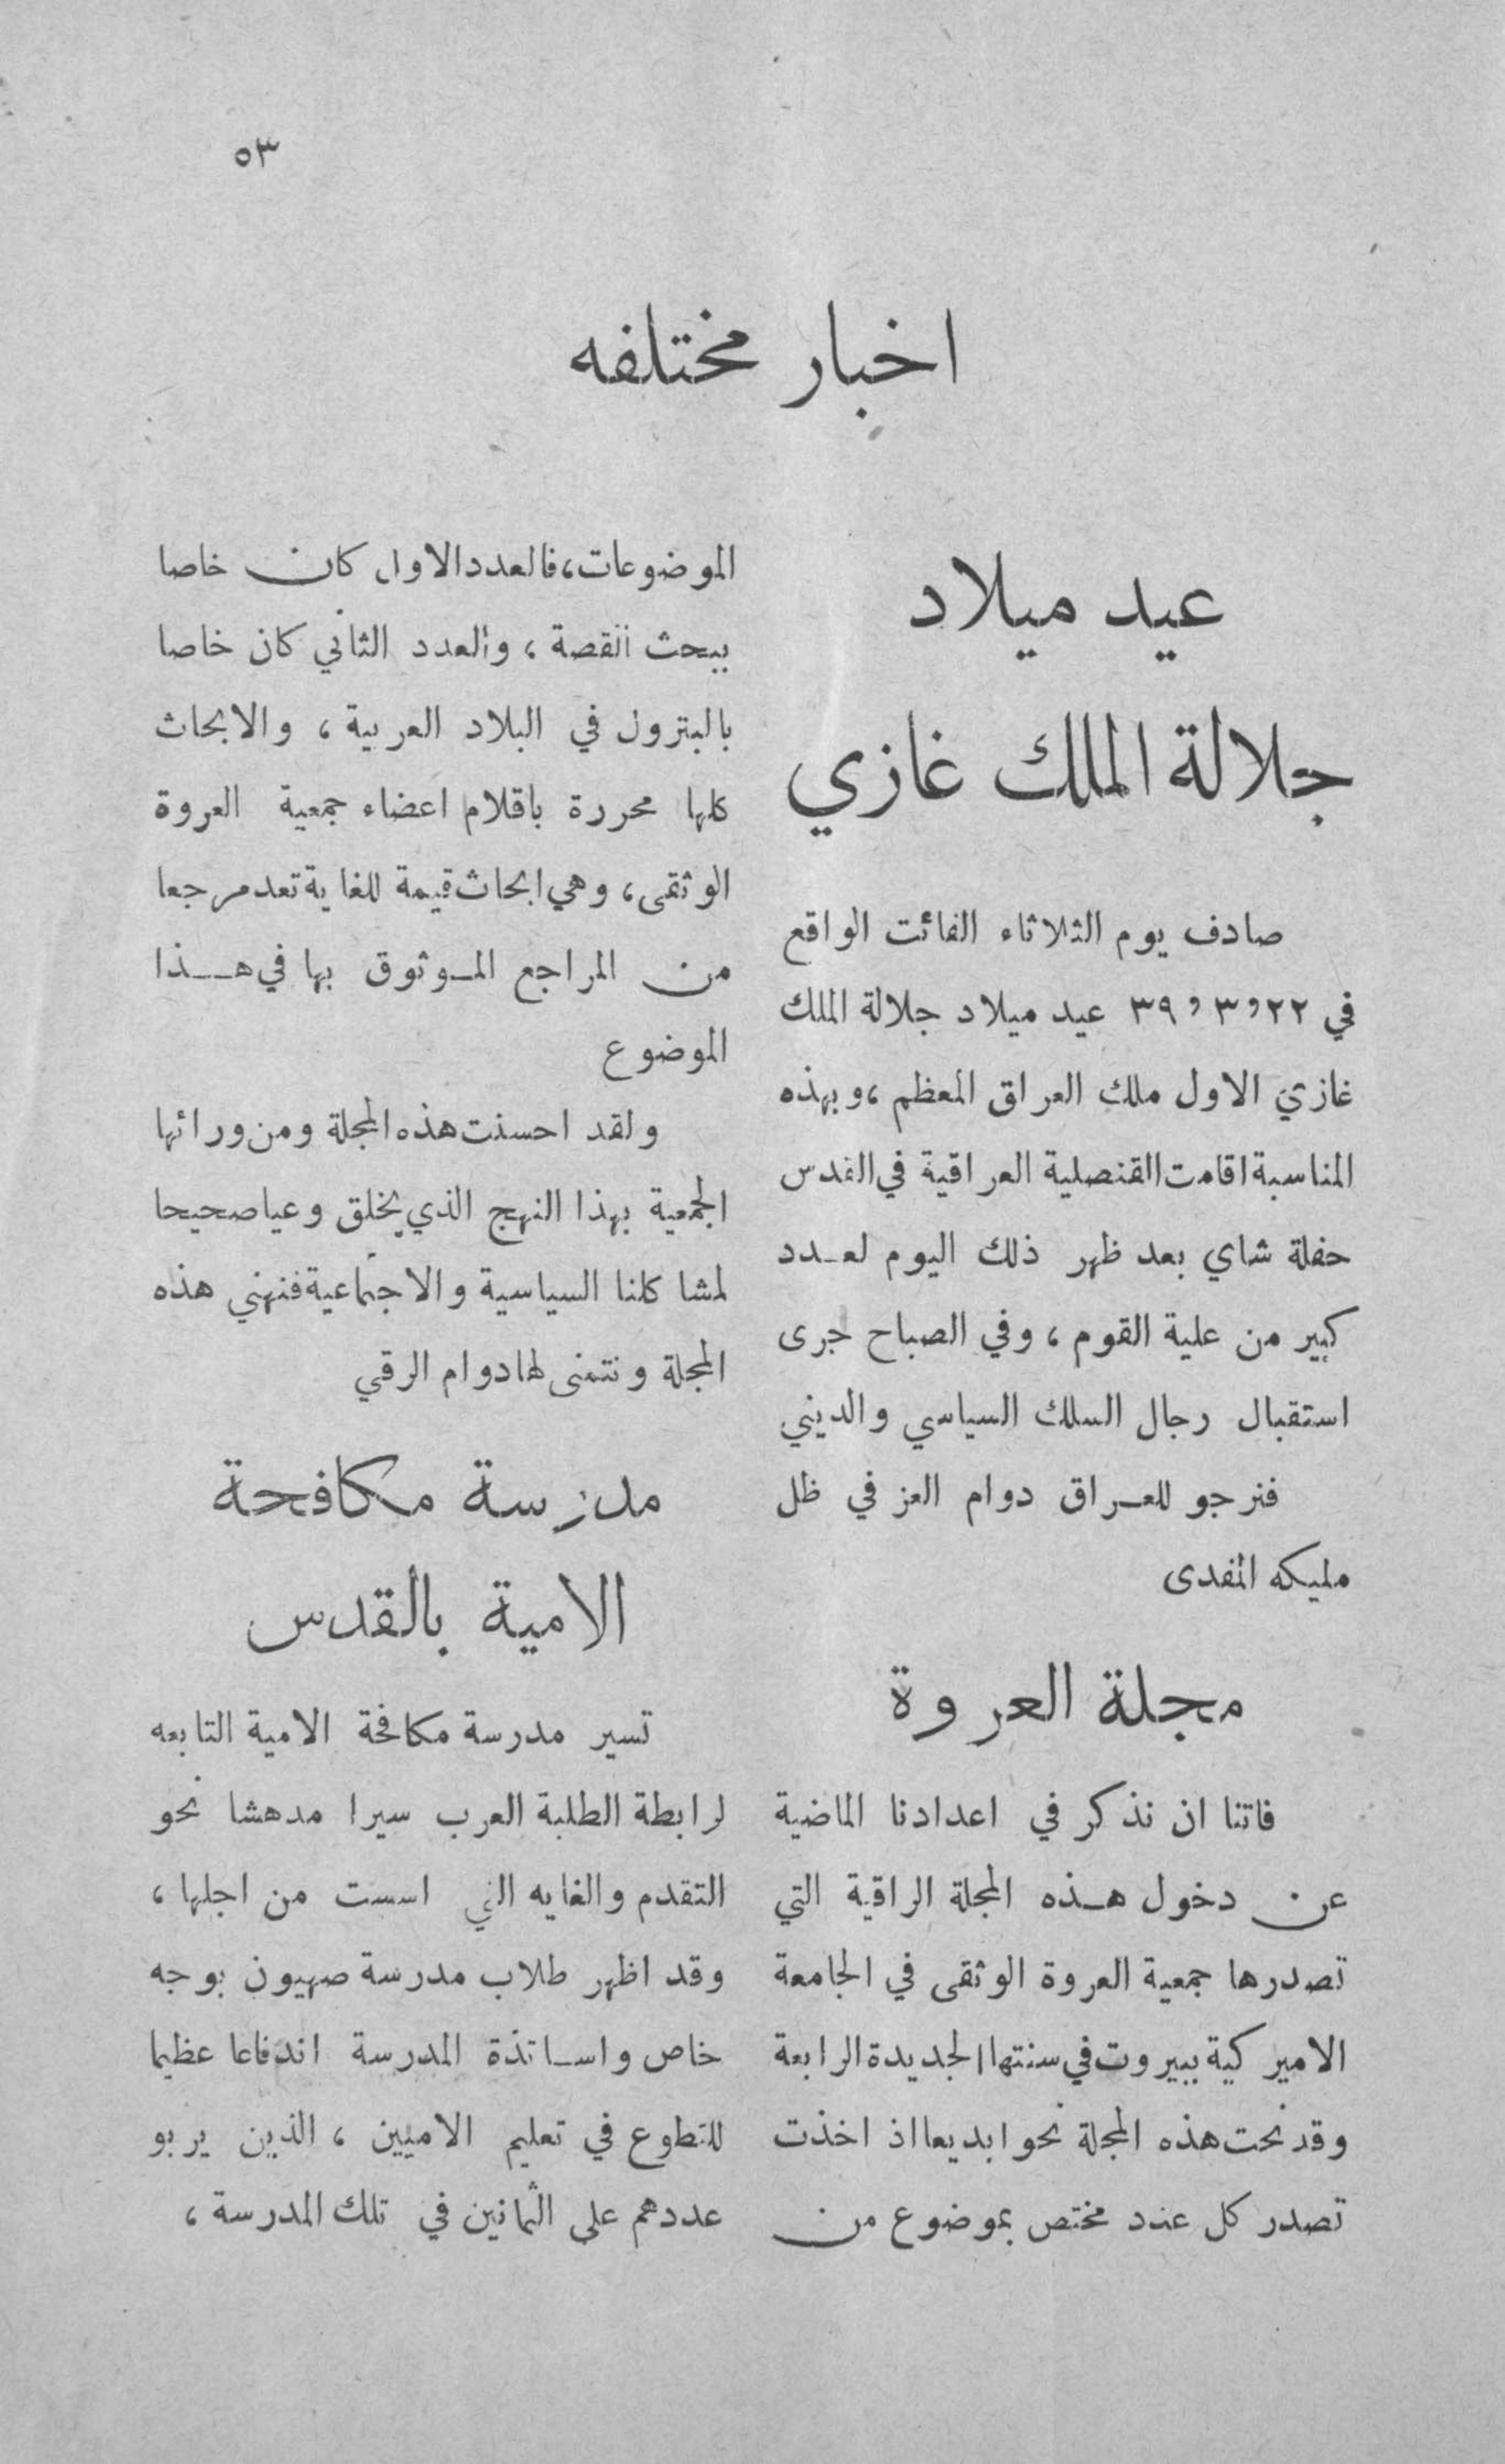 ٥٣
اخبار مختلفه
عيد ميلاد
جلالة الملك غازي
صادف يوم الثلاثاء الفائت الواقع
في ٢٢,٣,٣٩ عيد ميلاد جلالة الملك
غازي الاول ملك العراق المعظم ،وبهذه
المناسبة اقامت القنصلية العراقية في القدس
حفلة شاي بعد ظهر ذلك اليوم لعـدد
كبير من علية القوم ، وفي الصباح جرى
استقبال رجال السلك السياسي والديني
فنرجو للعـراق دوام العز في ظل
مليكه المفدى
مجلة العروة
فاتنا ان نذكر في اعدادنا الماضية
عن دخول هـذه المجلة الراقية التي
تصدرها جمعية العروة الوثقى في الجامعة
الاميركية ببيروت في سنتها الجديدة الرابعة
وقد نحت هذه المجلة نحوا بديعا اذ اخذت
تصدر كل عدد مختص بموضوع من
الموضوعات، فالعدد الاول كان خاصا
ببحث القصة ، والعدد الثاني كان خاصا
بالبترول في البلاد العربية ، والابحاث
كلها محررة باقلام اعضاء جمعية العروة
الوثقى، وهي ابحاث قيمة للغاية تعد مرجعا
من المراجع المـوثوق بها في هـذا
الموضوع
ولقد احسنت هذه المجلة ومن ورائها
الجمعية بهذا النهج الذي يخلق وعيا صحيحا
لمشاكلنا السياسية والاجتماعية فنهني هذه
المجلة ونتمنى لها دوام الرقي
مدرسة مكافحة
الامية بالقدس
تسير مدرسة مكافحة الامية التابعه
لرابطة الطلبة العرب سيرا مدهشا نحو
التقدم والغايه التي اسست من اجلها ،
وقد اظهر طلاب مدرسة صهيون بوجه
خاص واسـاتذة المدرسة اندفاعا عظيما
للتطوع في تعليم الاميين ، الذين يربو
عددهم على الثمانين في تلك المدرسة ،